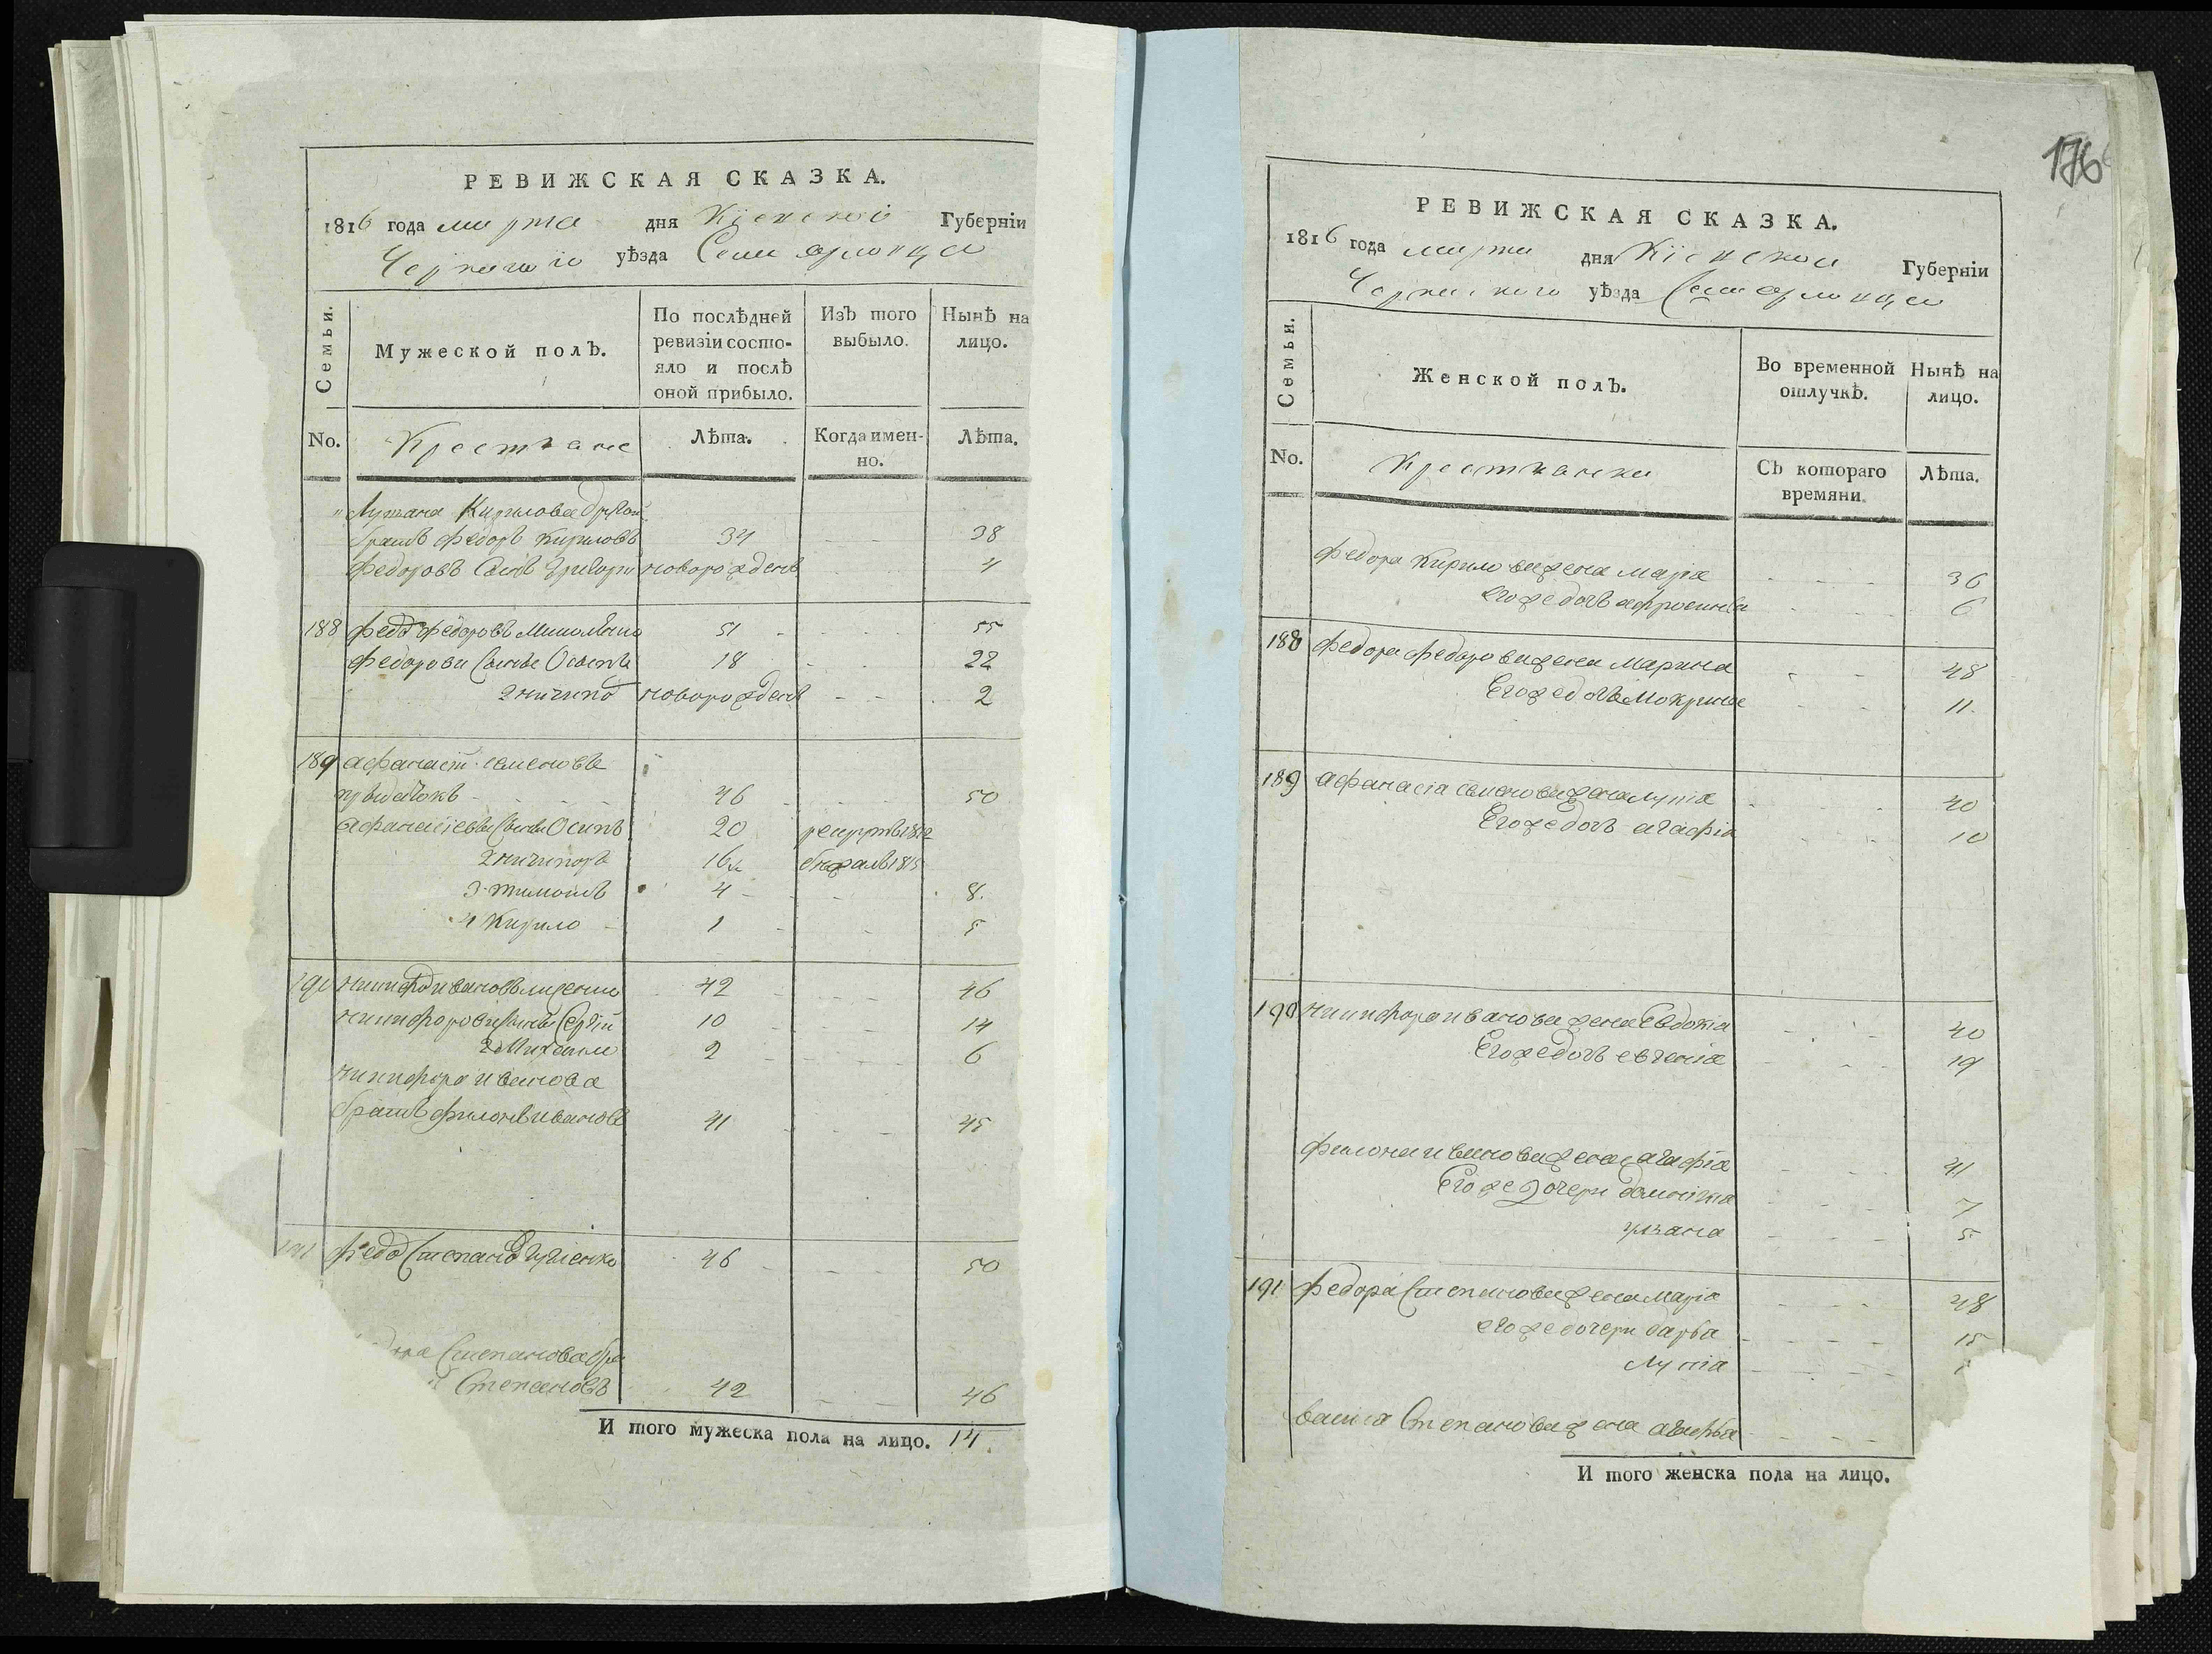 РЕВИЖСКАЯ СКАЗКА.
1816 года марта дня Кіевской Губерніи
Черкаского уѣзда Села
Семьи.
Мужеской полъ.
По послѣдней ревизіи состояло и послѣ оной прибыло.
Изъ того выбыло.
Нынѣ на лицо.
No.
Крестяне
Лѣта.
Когда именно.
Лѣта.
Кирилова другой
братъ Федоръ Кириловъ 34 38
Федоровъ Сынъ Григори новорожденъ 4
188 Федо Федоровъ 51 55
Федорови Сыны Осипъ 18 22
2 ничипо новорожденъ 2
189 Афанасій семеновъ
46 50
Афанасіеви Сыны Осипъ 20 рекрутъ 1812
2 ничипоръ 16 бежалъ 1815
3 тимошъ 4 8.
4 Кирило 1 5
190 никифо ивановъ 42 46
никифорови Сыны Сергій 10 14
2 Михаило 2 6
никифора иванова
братъ филонъ ивановъ 41 45
191 Федо Степано 46 50
Степанова бра
Степановъ 42 46
И того мужеска пола на лицо. 14.
176
РЕВИЖСКАЯ СКАЗКА.
1816 года марта дня Кіевской Губерніи
Черкаского уѣзда Села
Семьи.
Женской полъ.
Во временной отлучкѣ.
Нынѣ на лицо.
No.
Крестянки
Съ котораго времяни.
Лѣта.
Федора Кирилова жена Марія 36
Его же дочь афросинья 6
188 Федора Федорова жена Марина 48
Его же дочь Мокрина 11.
189 Афанасія семенова жена 40
Его же дочь агафія 10
190 никифора иванова жена Евдокія 40
Его же дочь евгенія 19
филона иванова жена агафія 41
Его же дочери домникия 7
уляана 5
191 Федора Степанова жена Марія 48
его же дочери варва 15
Степанова жена
И того женска пола на лицо.